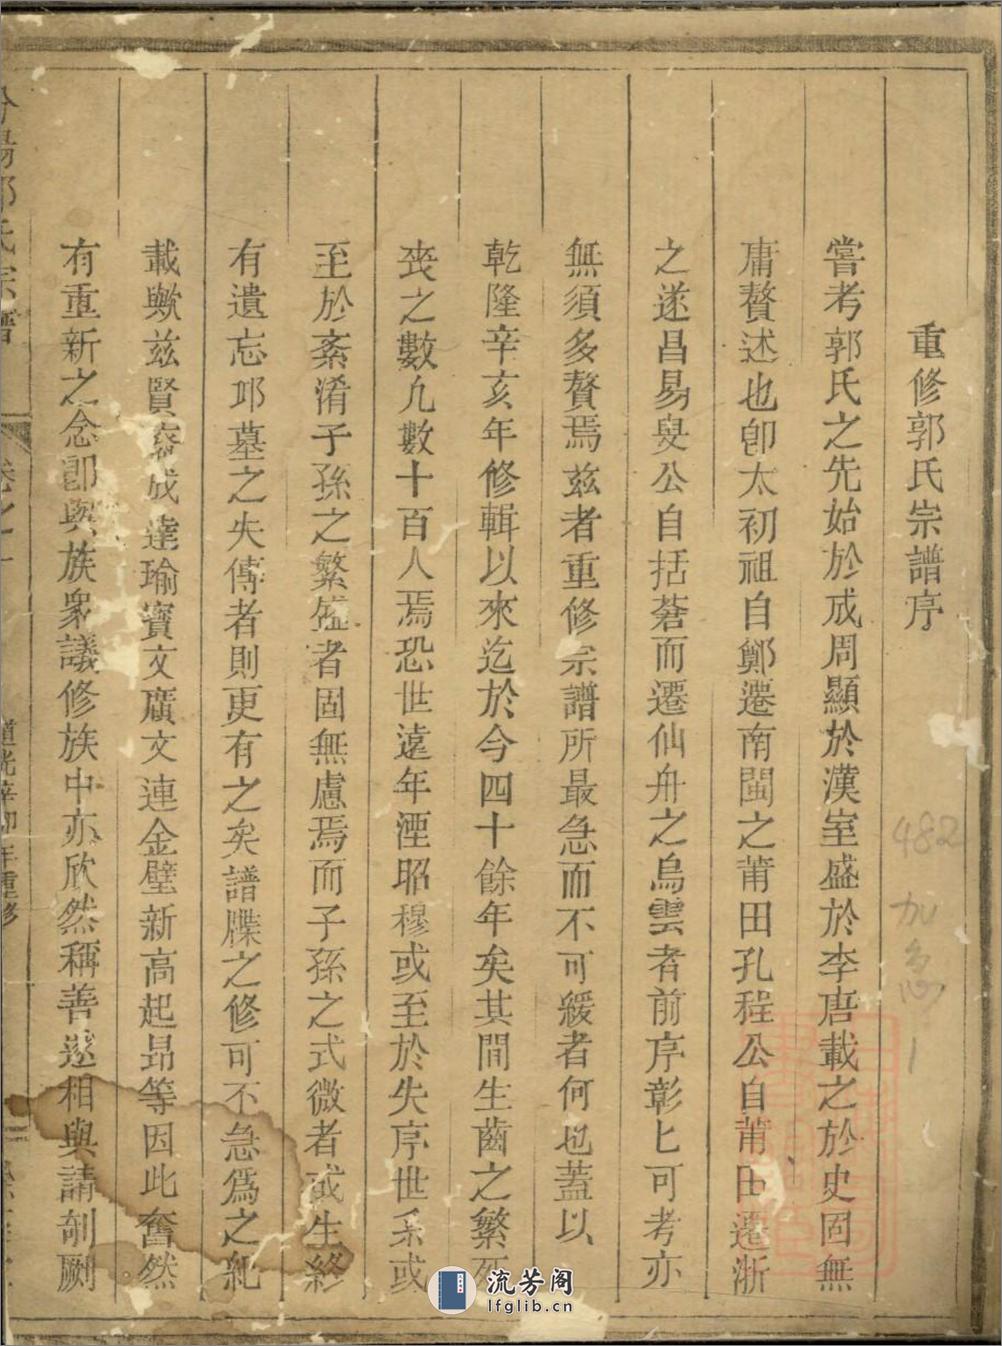 重修郭氏宗譜序
嘗考郭氏之先始於成周顯於漢室盛於李唐載之於史固無
庸贅述也卽太初祖自鄭遷南閩之莆田孔程公自莆田遷浙
之遂昌易叟公自括蒼而遷仙舟之烏雲者前序彰匕可考亦
無須多贅焉兹者重修宗譜所最急而不可緩者何也蓋以
乾隆辛亥年修輯以來迄於今四十餘年矣其間生齒之繁死
喪之數九數十百人焉恐世遠年湮昭穆或至於失序世系或
至於紊淆子孫之繁盛者固無慮焉而子孫之式微者或生終
有遺忘邱墓之失傳者則更有之矣譜牒之修可不急爲之紀
載歟兹賢裔成達瑜寶文廣文連金璧新高起昂等因此奮然
有重新之念卽與族衆議修族中亦欣然稱善遂相與請剞劂
汾陽郭氏宗譜 卷之一 道光辛卯年重修
482 加 1
流芳阁
lfglib.cn